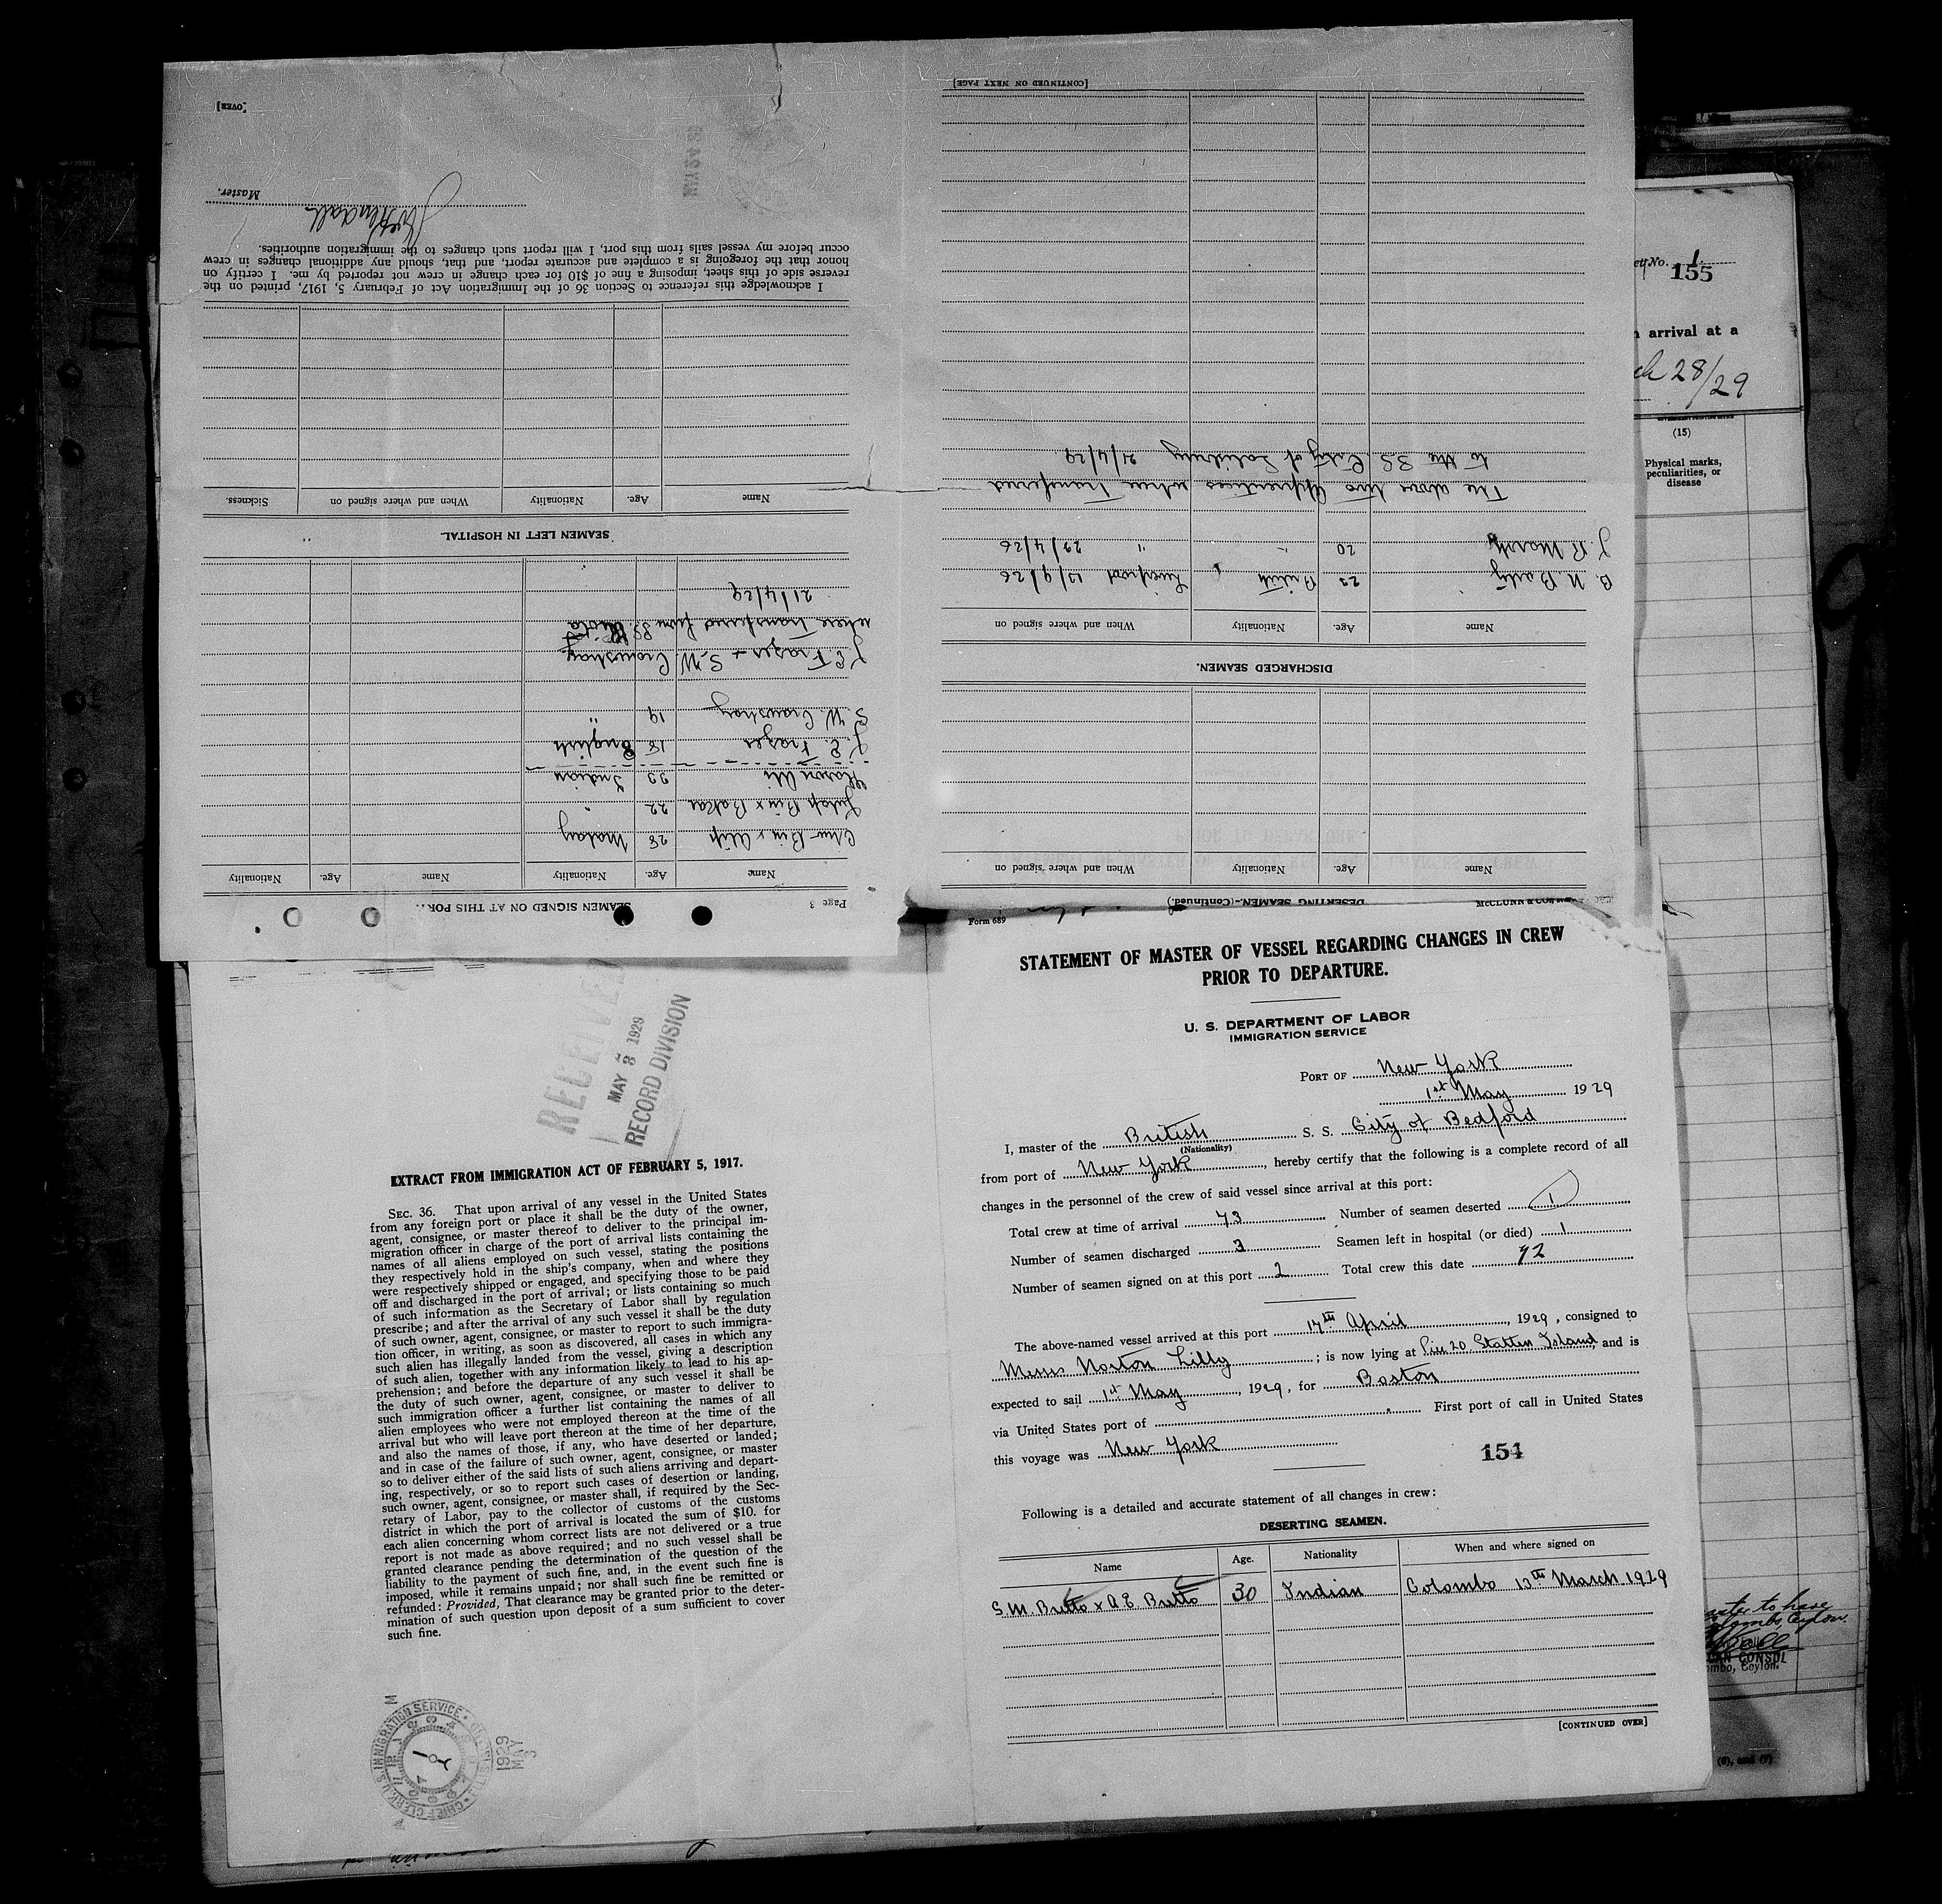 Form 689
STATEMENT OF MASTER OF VESSEL REGARDING CHANGES IN CREW
PRIOR TO DEPARTURE.
U. S. DEPARTMENT OF LABOR
IMMIGRATION SERVICE
PORT OF New York
1st May 1929
I, master of the British S. S. City of Bedford
(Nationality)
from port of New York, hereby certify that the following is a complete record of all
changes in the personnel of the crew of said vessel since arrival at this port:
Total crew at time of arrival 73 Number of seamen deserted 1
Number of seamen discharged 3 Seamen left in hospital (or died) 1
Number of seamen signed on at this port 2 Total crew this date 72
The above-named vessel arrived at this port 17th April, 1929, consigned to
Messrs Norton Lilly; is now lying at Pier 20 Statten Island, and is
expected to sail 1st May, 1929, for Boston
via United States port of First port of call in United States
this voyage was New York
154
Following is a detailed and accurate statement of all changes in crew:
DESERTING SEAMEN.
Name Age. Nationality When and where signed on
S.M. Britto x A.E. Britto 30 Indian Colombo 13th March 1929
[CONTINUED OVER]
RECEIVED
MAY 3 1929
RECORD DIVISION
EXTRACT FROM IMMIGRATION ACT OF FEBRUARY 5, 1917.
SEC. 36. That upon arrival of any vessel in the United States
from any foreign port or place it shall be the duty of the owner,
agent, consignee, or master thereof to deliver to the principal im-
migration officer in charge of the port of arrival lists containing the
names of all aliens employed on such vessel, stating the positions
they respectively hold in the ship's company, when and where they
were respectively shipped or engaged, and specifying those to be paid
off and discharged in the port of arrival; or lists containing so much
of such information as the Secretary of Labor shall by regulation
prescribe; and after the arrival of any such vessel it shall be the duty
of such owner, agent, consignee, or master to report to such immigra-
tion officer, in writing, as soon as discovered, all cases in which any
such alien has illegally landed from the vessel, giving a description
of such alien, together with any information likely to lead to his ap-
prehension; and before the departure of any such vessel it shall be
the duty of such owner, agent, consignee, or master to deliver to
such immigration officer a further list containing the names of all
alien employees who were not employed thereon at the time of the
arrival but who will leave port thereon at the time of her departure,
and also the names of those, if any, who have deserted or landed;
and in case of the failure of such owner, agent, consignee, or master
so to deliver either of the said lists of such aliens arriving and depart-
ing, respectively, or so to report such cases of desertion or landing,
such owner, agent, consignee, or master shall, if required by the Sec-
retary of Labor, pay to the collector of customs of the customs
district in which the port of arrival is located the sum of $10. for
each alien concerning whom correct lists are not delivered or a true
report is not made as above required; and no such vessel shall be
granted clearance pending the determination of the question of the
liability to the payment of such fine, and, in the event such fine is
imposed, while it remains unpaid; nor shall such fine be remitted or
refunded: Provided, That clearance may be granted prior to the deter-
mination of such question upon deposit of a sum sufficient to cover
such fine.
1929
MAY
3
DESERTING SEAMEN.-(Continued.)
Name Age. Nationality When and where signed on
DISCHARGED SEAMEN.
Name Age. Nationality When and where signed on
23 British Liverpool 13/9/26
20 " " 29/4/26
The above two Apprentices where Transferred
to the SS City of Salisbury 21/4/29
[CONTINUED ON NEXT PAGE]
Page 3
SEAMEN SIGNED ON AT THIS PORT.
Name Age. Nationality Name Age. Nationality
28 Malay
Bin x Bakar 22 "
Hason Ali 23 Indian
J. E. Frazer 18 English
S. W. Crowshay 19 "
J E Frazer + S. W. Crowshay
where Transferred from SS.
21/4/29
SEAMEN LEFT IN HOSPITAL.
Name Age. Nationality When and where signed on Sickness.
I acknowledge this reference to Section 36 of the Immigration Act of February 5, 1917, printed on the
reverse side of this sheet, imposing a fine of $10 for each change in crew not reported by me. I certify on
honor that the foregoing is a complete and accurate report, and that, should any additional changes in crew
occur before my vessel sails from this port, I will report such changes to the immigration authorities.
Master.
[OVER]
No. 1
155
arrival at a
28/29
(15)
Physical marks,
peculiarities, or
disease
to have
Colombo, Ceylon.
CONSUL
Ceylon.